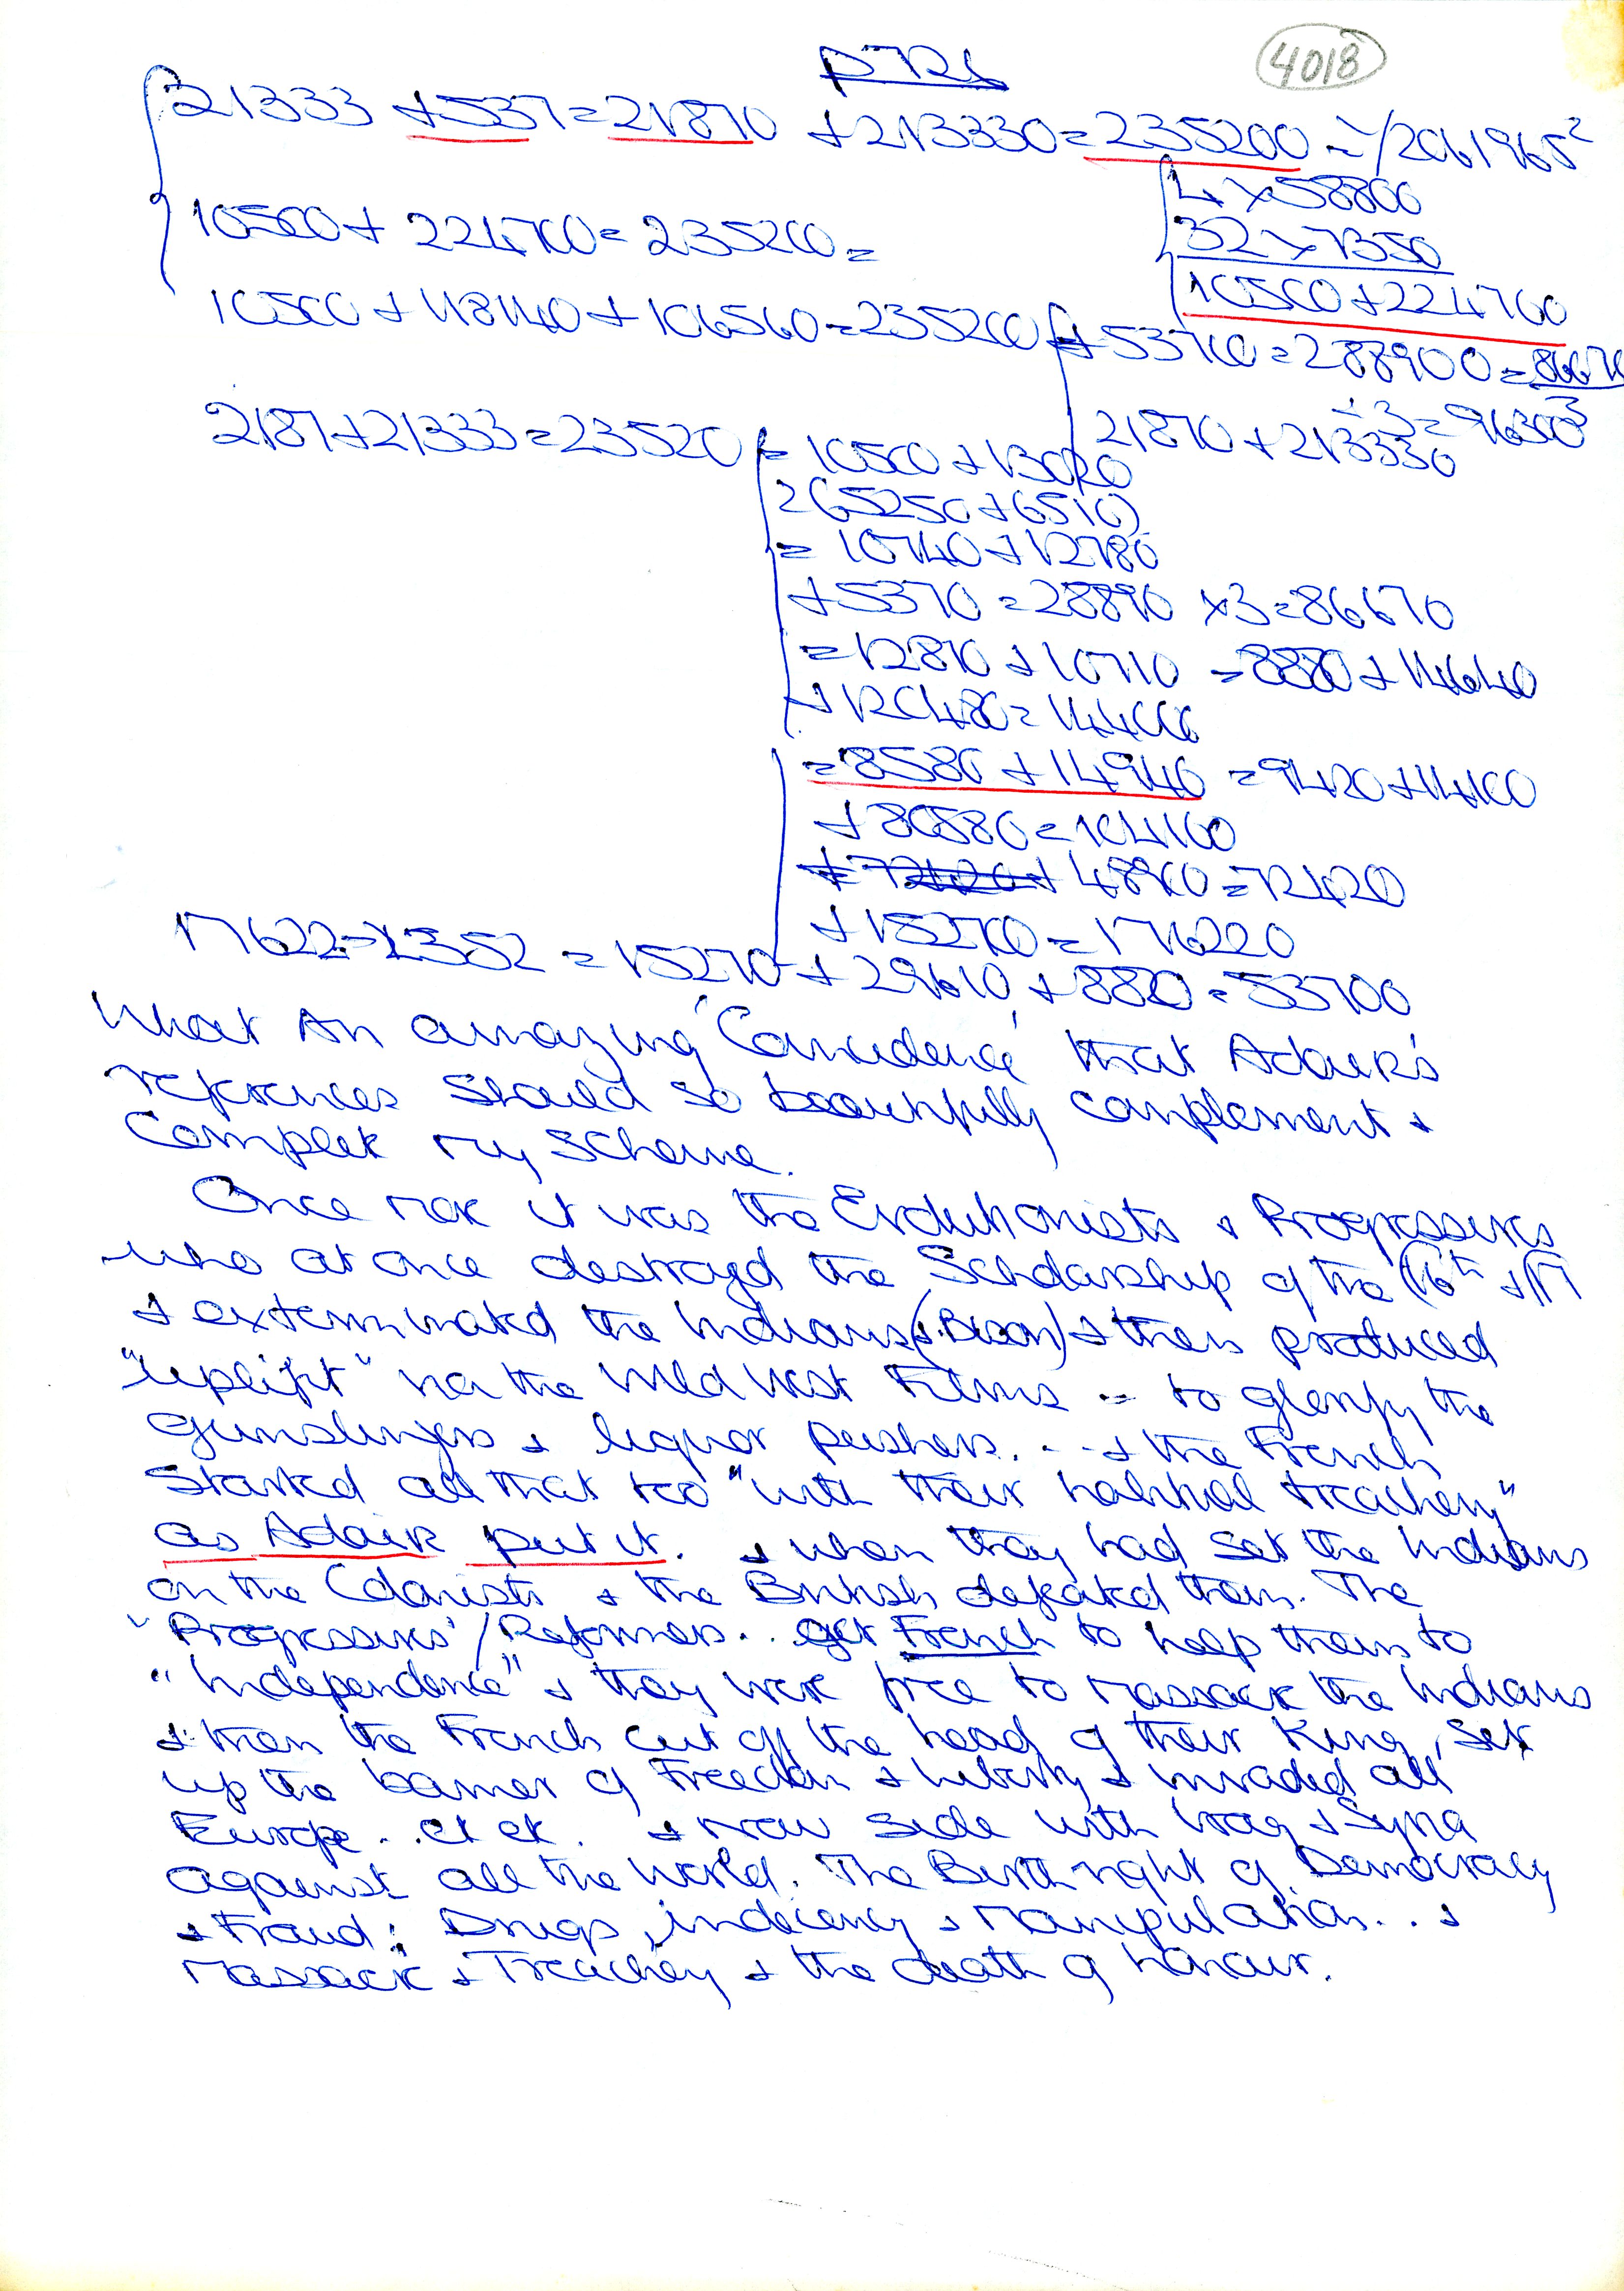 p726
4018
21333 + 537 = 21870 + 213330 = 235200 =
4 x 58800
32 x 7350
10500 + 224700 = 235200 =
10500 + 224700
10500 + 118140 + 106560 = 235200
+ 53700 = 288900 = 86670
÷ 3 = 96300
2187 + 21333 = 23520
21870 + 213330
= 10500 + 13020
2(5250 + 6510)
= 10740 + 12780
+ 5370 = 28890 x 3 = 86670
= 12810 + 10710 = 8880 + 14640
+ 120480 = 144000
= 8580 + 14940 = 9420 + 14100
+ 80580 = 104100
+ 48900 = 72420
+ 152700 = 176220
17622 - 2352 = 15270 + 29610 + 8820 = 53700
What An amazing 'Coincidence' that Adair's
references should so beautifully complement +
Complete my Scheme.
Once more it was the Evolutionists + Progressives
who at once destroyed the Scholarship of the 16th + 17
+ exterminated the Indians (+ Bison) + then produced
"uplift" via the Wild West Films .. to glorify the
Gunslingers + liquor pushers. .. + the French
Started all that too "with their habitual treachery"
as Adair put it. + when they had set the Indians
on the Colonists + the British defeated them. The
"Progressives"/Reformers .. get French to help them to
"Independence" + they were free to massacre the Indians
+ then the French cut off the head of their King, set
up the banner of Freedom + Liberty + invaded all
Europe .. et et. + now side with Iraq + Syria
against all the World. The Birthright of Democracy
+ Fraud: Drugs, indecency + Manipulation .. +
Massacre + Treachery + the death of honour.